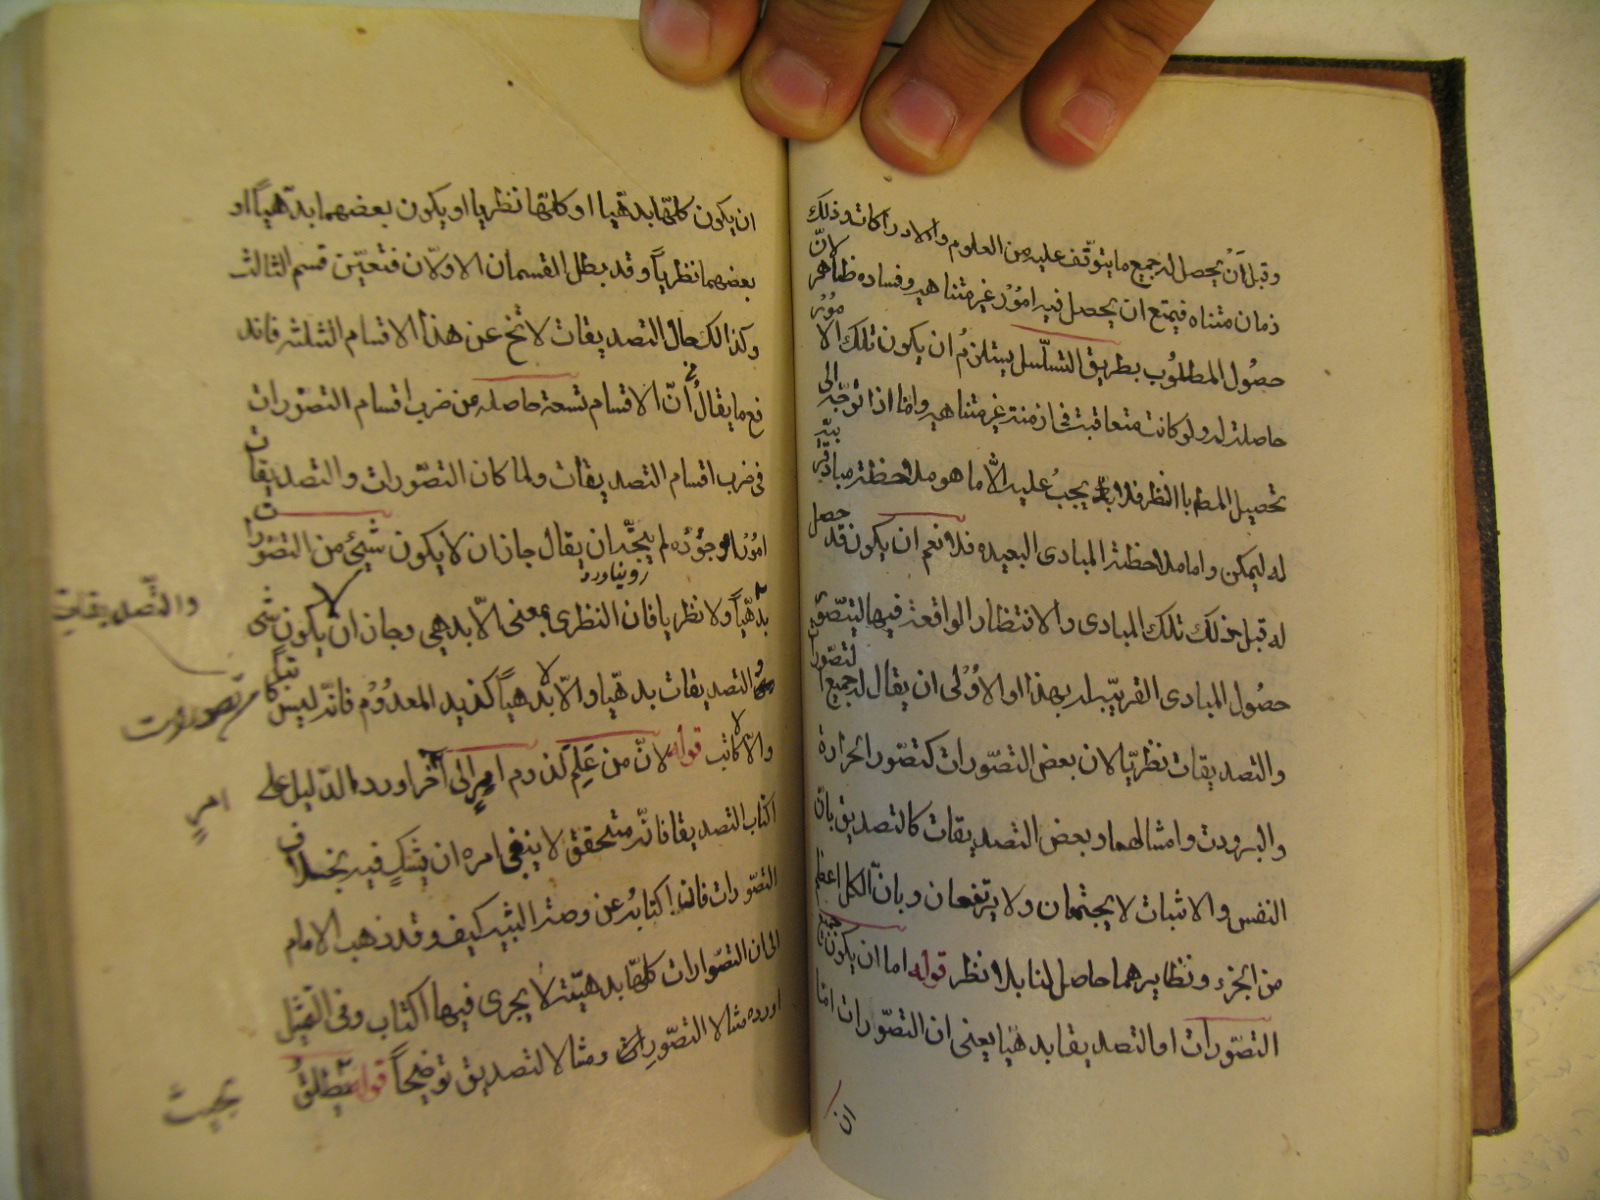 وقبل أن يحصل له جميع ما يتوقف عليه من العلوم والادراكات وذلك لانّ
زمان متناه فيمتع ان يحصل فيه امُوُر غير متناهيه وفساده ظاهر
حصُول المطلوُب بطريق التسلّسل يستلزمُ ان يكون تلك الامُوُر
حاصلة له ولو كانت متعاقبة فى ازمنة غير متناهيه واما اذا توجّه الى
تحصيل المط باالنظر فلا يجبُ عليه الّا ما هو ملاحظة مباد قريبة
له ليمكن واما ملاحظة المبادى البعيده فلا نعم ان يكون قد حصل
له قبل ذلك تلك المبادى والانتظار الواقعة فيها ليتصّور
حصُول المبادى القريبة له بهذا والاوُلى ان يقال لو جميع التصّورا
والتصديقات نظريّا لان بعض التصّورات كتصّور الحرارة
والبرودت وامثالهما وبعض التصديقات كالتصديق بانّ
النفس والاثبات لا يجتمعان ولا يرتفعان وبانّ الكل اعظم
من الجزء ونظايرهما حاصل لنا بلا نظر قوله اما ان يكون جميع
التصّورات او التصديقا بدهيّا يعنى ان التصّورات امّا
ان
ان يكون كلّها بدهيّا او كلّها نظريا او يكون بعضهما بدهياً او
بعضهما نظرياً وقد بطل القسمان الاولان فتعيّن قسم الثالث
وكذالك حال التصديقات لا تخ عن هذا الاقسام الثلثه فاند
فع ما يقال أنّ الاقسام تسعة حاصله من ضرب اقسام التصّورات
فى ضرب اقسام التصديقات ولما كان التصّورات والتصديقات
امُوُرا موجوُده لم يتجّه ان يقال جاز ان لا يكون شيئ من التصّورات
بدهيّاً ولا نظريا فان النظرى بمعنى الّا بدهى وجاز ان لا يكون شى
والتصديقات
التصديقات بدهيّا والّا بدهياً كزيد المعدوُم فانّه ليس كاتبا
تصورات
والّا كاتب قوله لانّ من عَلِمَ لزوم امرٍ الى آخر اورد الدّليل على
امرٍ
اكتاب التصديقا فانّه متحقق لا ينبغى امره ان يشك فيه بخلاف
التصّورات فان اكتابهُ عن وصمة البثيه كيف وقد ذهب الامام
الى ان التصّوارات كلّها بدهيّة لا يجرى فيها اكتاب وفى القيل
اورده مثالا التصّورات ومثالا لتصديق توضيحاً قوله بطلق
بحيث